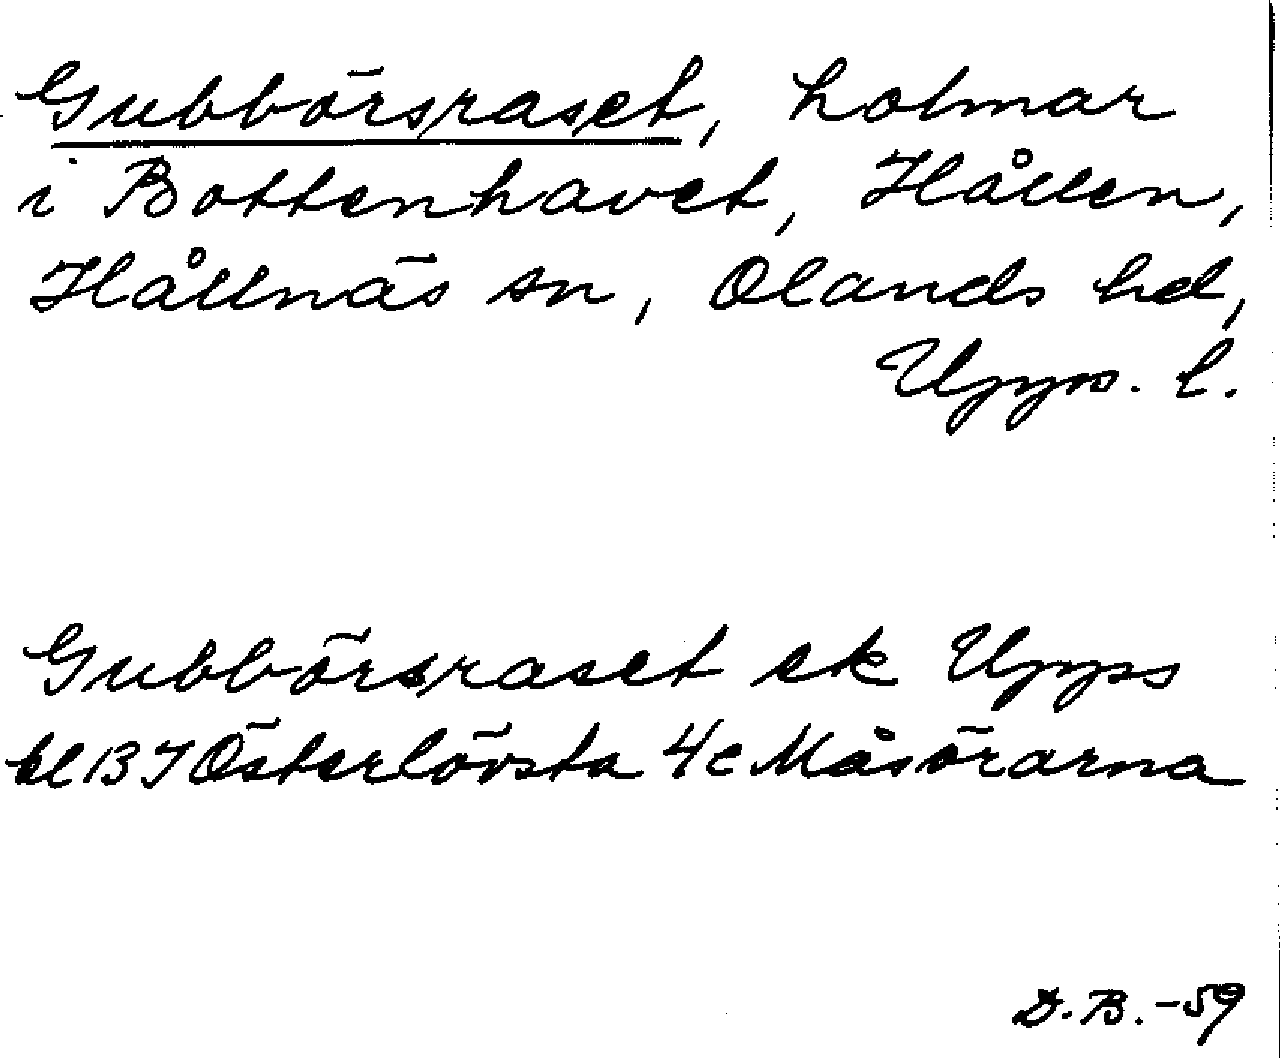 Gubbörsraset, holmar
i Bottenhavet, Hållen,
Hållnäs sn, Olands hd,
Upps. l.
Gubbörsraset ek Upps
bl 13 I Österlövsta 4c Måsörarna
D.B. -59